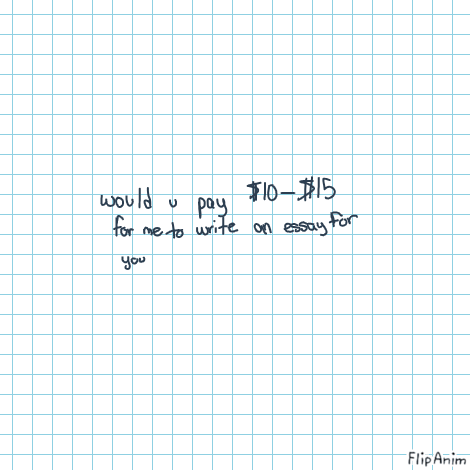 would u pay $10-$15
for me to write an essay for
you
FlipAnim